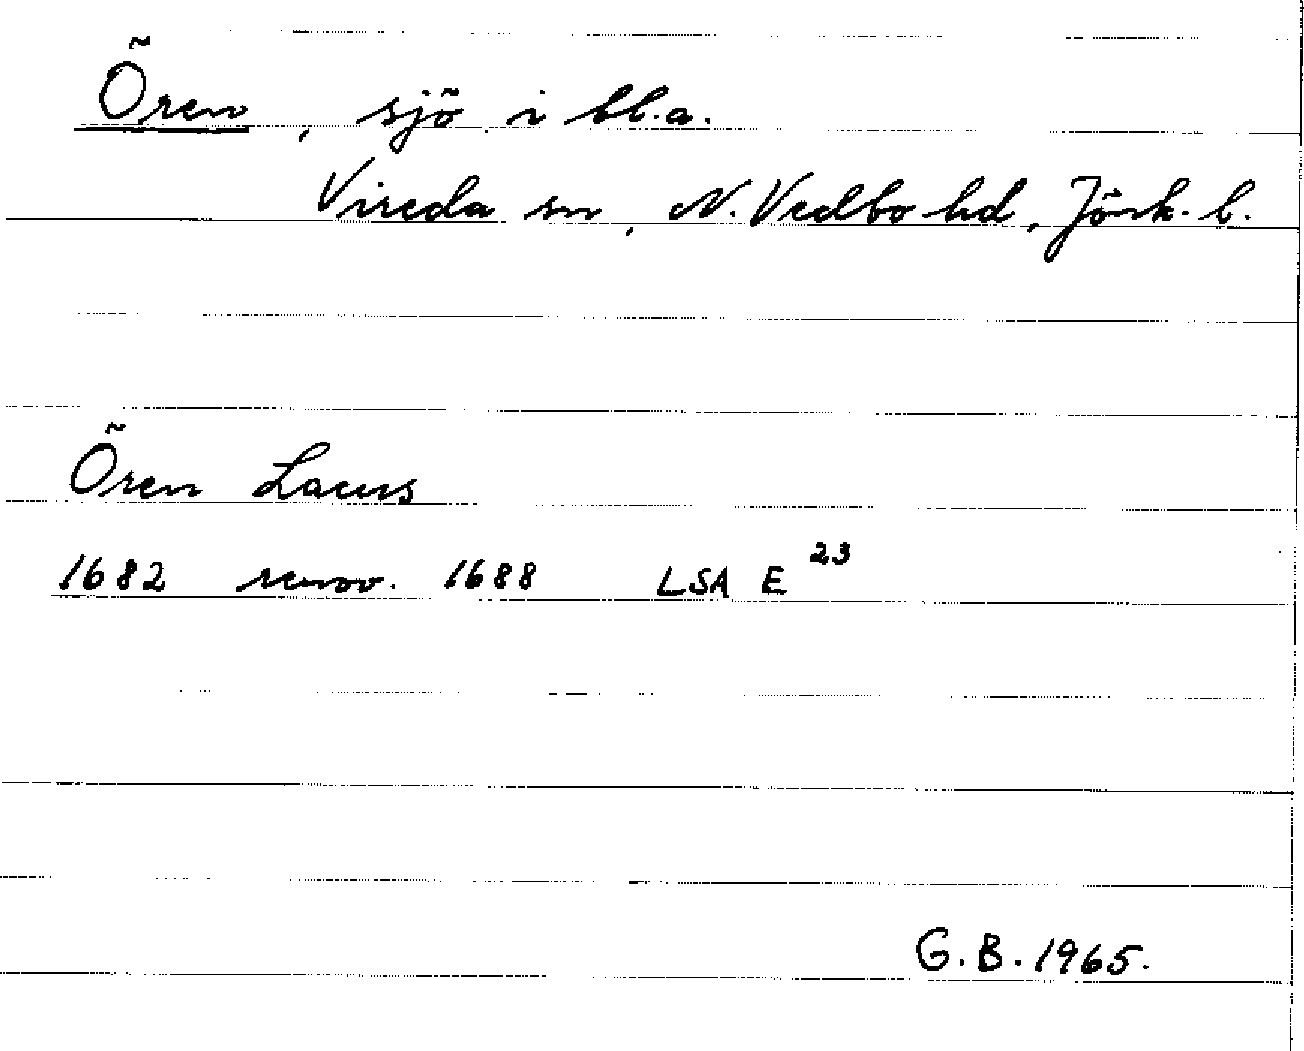 Ören, sjö i bl.a.
Vireda sn, N. Vedbo hd, Jönk. l.
Ören Lacus
1682 renov. 1688 LSA E 23
G.B. 1965.